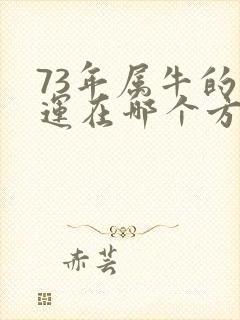 73年属牛的
运在哪个方
赤芸